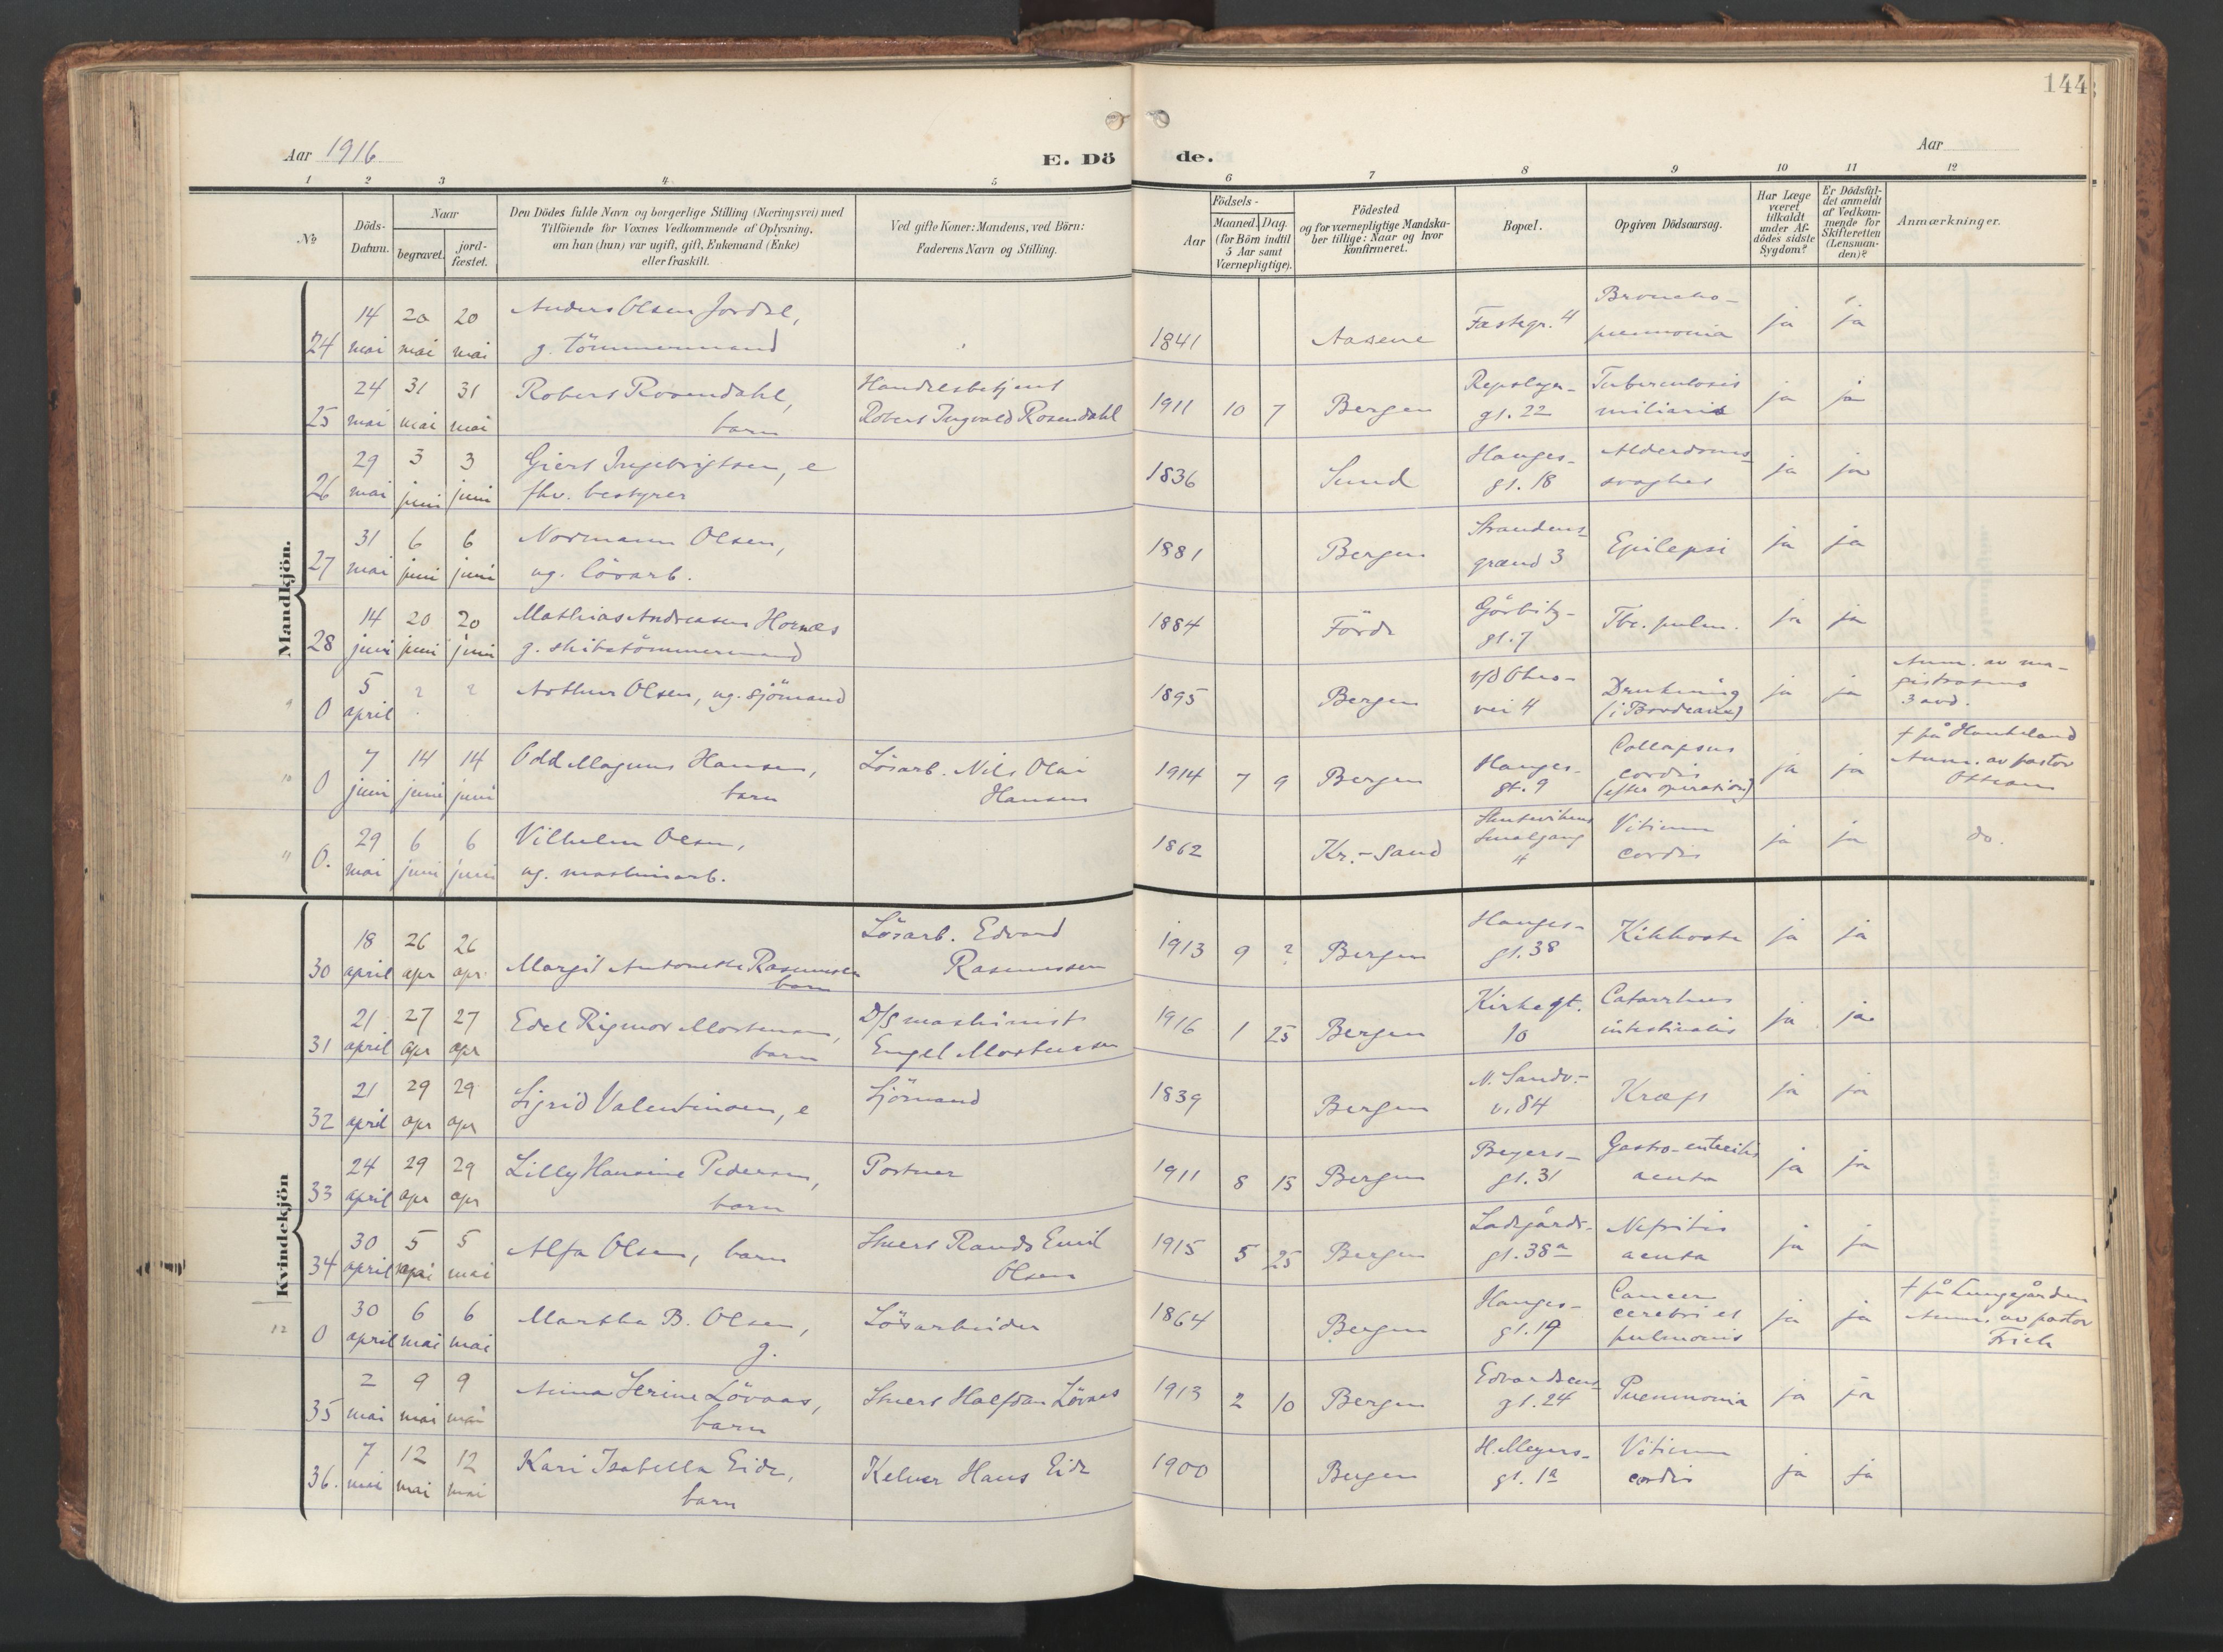 144
Aar 1916
E. Dö de.
Aar
1 2 3 4 5 6 7 8 9 10 11 12
№
Döds-
Datum.
Naar
begravet.
jord-
fæstet.
Den Dödes fulde Navn og borgerlige Stilling (Næringsvei) med
Tilföiende for Voxnes Vedkommende af Oplysning,
om han (hun) var ugift, gift, Enkemand (Enke)
eller fraskilt.
Ved gifte Koner: Mandens, ved Börn:
Faderens Navn og Stilling.
Födsels-
Aar
Maaned. Dag.
(for Börn indtil
5 Aar samt
Værnepligtige).
Födested
og for værnepligtige Mandska-
ber tillige: Naar og hvor
konfirmeret.
Bopæl.
Opgiven Dödsaarsag.
Har Læge
været
tilkaldt
under Af-
dödes sidste
Sygdom?
Er Dödsfal-
det anmeldt
af Vedkom-
mende for
Skifteretten
(Lensman-
den)?
Anmærkninger.
Mandkjön.
24 14 mai 20 mai 20 mai Anders Olsen Jordal,
g. tömmermand
1841 Aasene Fæstegr. 4 Broncho-
pneumonia ja ja
25 24 mai 31 mai 31 mai Robert Rosendahl,
barn
Handelsbetjent
Robert Ingvald Rosendahl
1911 10 7 Bergen Repslager-
gt. 22 Tuberculosis
miliaris ja ja
26 29 mai 3 juni 3 juni Giert Ingebrigtsen, e
fhv. bestyrer
1836 Sund Hauges-
gt. 18 Alderdoms-
svaghet ja ja
27 31 mai 6 juni 6 juni Normann Olsen,
ug. lösarb.
1881 Bergen Strandens-
grænd 3 Epilepsi ja ja
28 14 juni 20 juni 20 juni Mathias Andreasen Hornæs
g. skibstömmermand
1884 Förde Görbitz-
gt. 7 Tbc. pulm. ja ja
9 0 5 april ? ? Arthur Olsen, ug. sjömand
1895 Bergen
vei 4 Drukning
(i Bordeaux) ja ja Anm. av ma-
gistratens
3 avd.
10 0 7 juni 14 juni 14 juni Odd Magnus Hansen,
barn
Lösarb. Nils Olai
Hansen
1914 7 9 Bergen Hauges-
gt. 9 Collapsus
cordis
(efter operation) ja ja † på Haukeland
Anm. av pastor
11 0. 29 mai 6 juni 6 juni Vilhelm Olsen,
ug. maskinarb.
1862 Kr.-sand Skutevikens
Smalgang
4 Vitium
cordis ja ja do.
Kvindekjön
30 18 april 26 apr 26 apr. Margit Antonette Rasmussen
barn
Lösarb. Edvard
Rasmussen
1913 9 ? Bergen Hauges-
gt. 38 Kikhoste ja ja
31 21 april 27 apr 27 apr Edel Rigmor Mortensen,
barn
D/S maskinist
Engel Mortensen
1916 1 25 Bergen Kirkegt.
10 Catarrhus
intestinalis ja ja
32 21 april 29 apr 29 apr Sigrid Valentinsen, e
Sjömand
1839 Bergen N. Sandv.-
v. 84 Kræft ja ja
33 24 april 29 apr 29 apr Lilly Hansine Pedersen,
barn
Portner
1911 8 15 Bergen Beyers-
gt. 31 Gastro-enteritis
acuta ja ja
34 30 april 5 mai 5 mai Alfa Olsen, barn
Stuert Rands Emil
Olsen
1915 5 25 Bergen Ladegårds-
gt. 38a Nefritis
acuta ja ja
12 0 30 april 6 mai 6 mai Martha B. Olsen,
g.
Lösarbeider
1864 Bergen Hauges-
gt. 19 Cancer
cerebri et
pulmonis ja ja † på Lungegården
Anm. av pastor
Frich
35 2 mai 9 mai 9 mai Anna Serine Lövaas,
barn
Stuert Halfdan Lövaas
1913 2 10 Bergen Edvardsens-
gt. 24 Pneumonia ja ja
36. 7 mai 12 mai 12 mai Kari Isabella Eide,
barn
Kelner Hans Eide
1900 Bergen H. Meyers-
gt. 1a Vitium
cordis ja ja